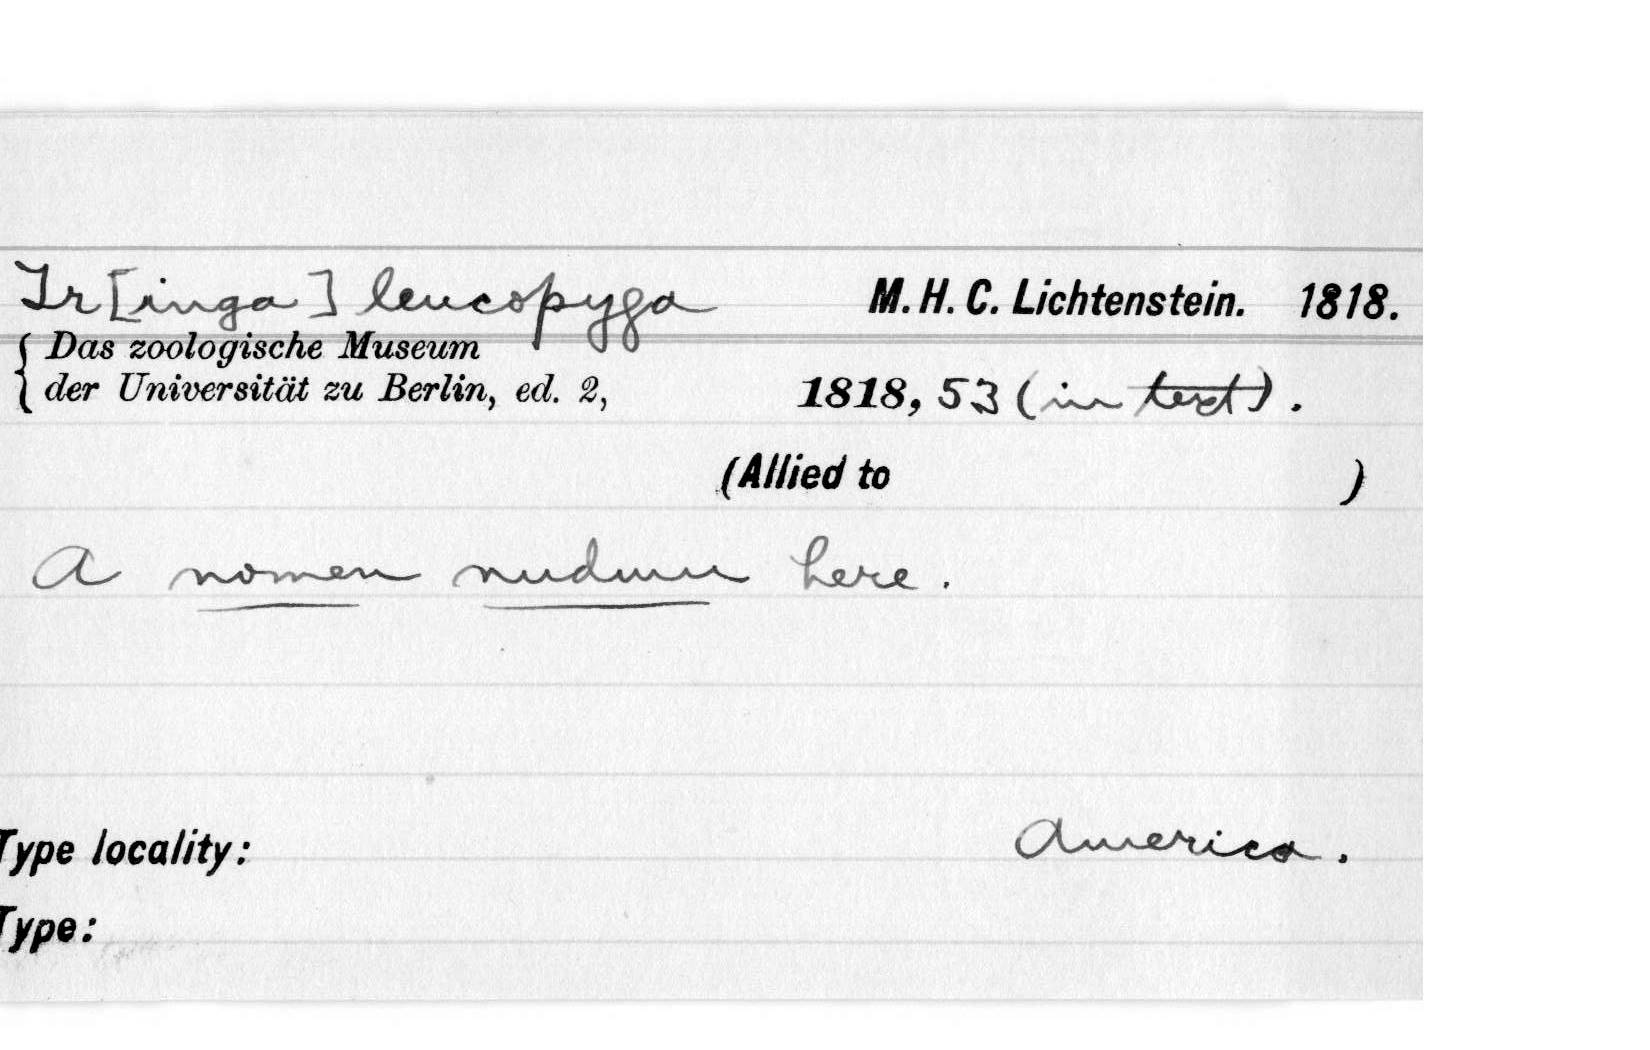 Tr[inga] leucopyga M. H. C. Lichtenstein. 1818.
{ Das zoologische Museum
der Universität zu Berlin, ed. 2, 1818, 53 (in text).
(Allied to )
A nomen nudum here.
Type locality: America.
Type: